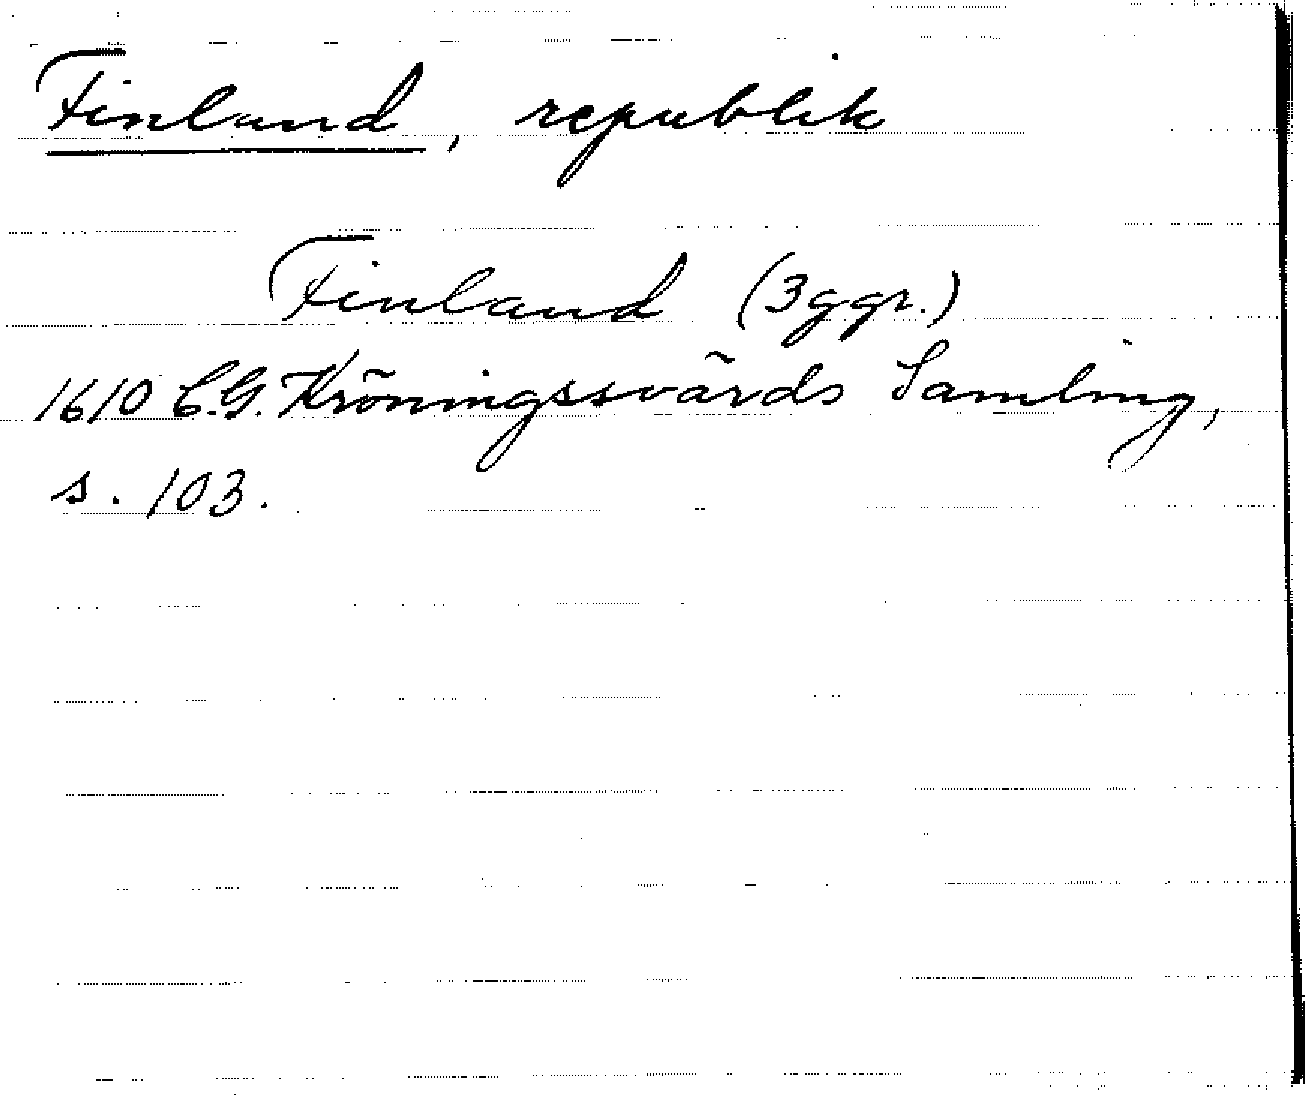 Finland, republik
Finland (3ggr.)
1610 C.G. Kröningssvärds Samling,
s. 103.